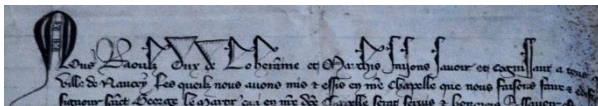 Nous Raoulz Dux de Loherainne et Marchis faisons savoir et cognissant a tous
ville de Nancey Les quelz nous avons mis et essis en nre chapelle que nous faisons faire
signour saint George le Martir en nre dce chapelle